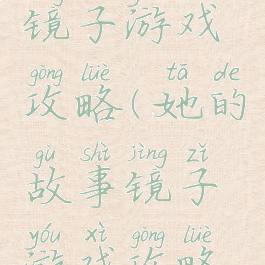 镜子游戏
gōng lüè tā de
攻略(她的
gù shì jìng zǐ
故事镜子
yóu xì gōng lüè
游戏攻略